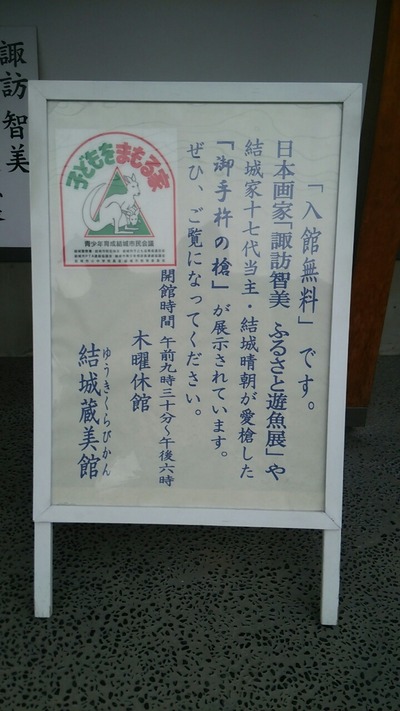 「入館無料」です。
日本画家「諏訪智美 ふるさと遊魚展」や
結城家十七代当主・結城晴朝が愛槍した
「御手杵の槍」が展示されています。
ぜひ、ご覧になってください。
開館時間 午前九時三十分～午後六時
木曜休館
ゆうきくらびかん
結城蔵美館
子どもをまもる家
青少年育成結城市民会議
諏訪智美